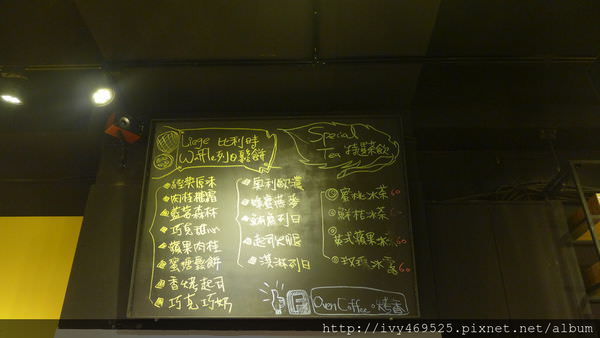 Liege 比利時
Waffle列日鬆餅
經典原味
肉桂糖霜
藍莓森林
巧克甜in
蘋果肉桂
蜜糖鬆餅
香烤起司
巧克巧奶
奧利歐濃
蜂蜜燕麥
鮪魚列日
起司火腿
淇淋列日
Special
Tea 特調茶飲
蜜桃冰茶 60
鮮桔冰茶 60
英式蘋果冰 60
玫瑰冰 60
Oven Coffee 烤香
http://ivy469525.pixnet.net/album